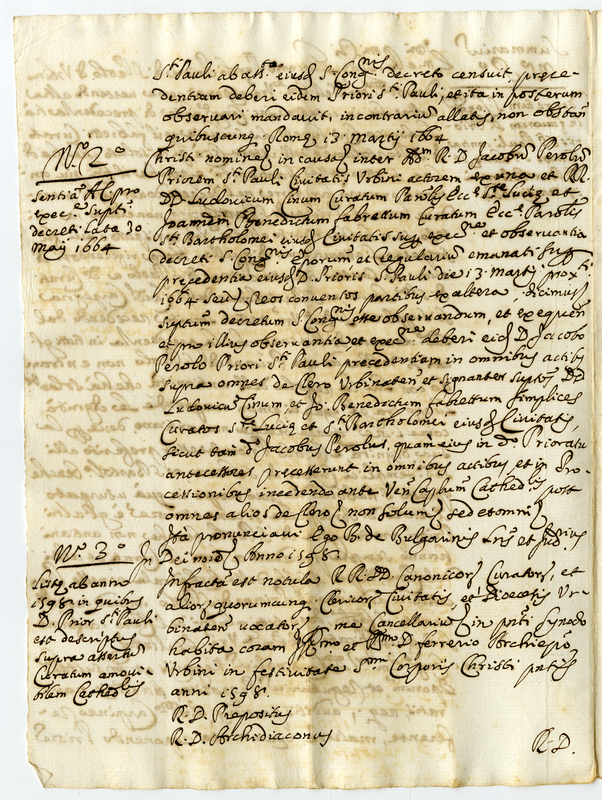 Sti Pauli ab ass.ta eiusd. S. Cong.nis decreto censuit, prece-
dentiam deberi eidem Priori sti Pauli, et ita in posterum
observari mandavit, in contrariu allatis, non obstan
quibuscunq. Romę 13 Martij 1664
N.º 2º
sentia Al. pro
exec. supti
decreti lata 30
Maij 1664
Christi nomine in causa inter Adm. R. D. Jacobu Perolu
Priorem sti Pauli Civitatis Urbini actorem ex una et RR.
DD. Ludovicum Cinum Curatum Parolis Ecc. Stę Lucię et
Joannem Benedictum fabrettum Curatum Ecc. Parolis
Sti Bartholomei eiusd. Civitatis sup. exec.ne et observantia
decreti S. Cong.nis et Regulariu emanati sup.
precedentia eiusd. D. Prioris S. Pauli die 13 Martij prox.
1664 seu Reos conventos partibus ex altera, Dicimus
suptum decretum S. Cong.nis esse observandum, et exequen
et pro illius observantia et exec.ne deberi eid. D. Jacobo
Perolo Priori Sti Pauli precedentiam in omnibus actibus
supra omnes de Clero Urbinaten et signanter suptos DD
Ludovicu Cinum, et Jo. Benedictum fabrettum simplices
Curatos stę Lucię et sti Bartholomei eiusd. Civitatis,
sicut tam d. Jacobus Perolus, quam eius in d. Prioratu
antecessores precesserunt in omnibus actibus, et in Pro-
cessionibus incedendo ante Ven. Caplum Cathed.lis post
omnes alios de Clero non solum sed et omni
Ita pronunciavi Ego B. de Bulgarinis
N.º 3º
In Dei noie Anno 1598
Listę ab anno
1598 in quibus
D. Prior Sti Pauli
est descriptus
supra assertu
Curatum amovi-
bilem Cathed.lis
Infracta est notula RR. DD. Canonicor Curator, et
alior quorumcunq. Clericor Civitatis, et Diocesis Ur-
binaten vocator me Cancellariu in pnti synodo
habita coram Ill.mo et R.mo D. ferrerio Archiepo
Urbini in festivitate S.mi Corporis Christi pntis
anni 1598.
R. D. Prepositus
R. D. Archidiaconus
R. D.